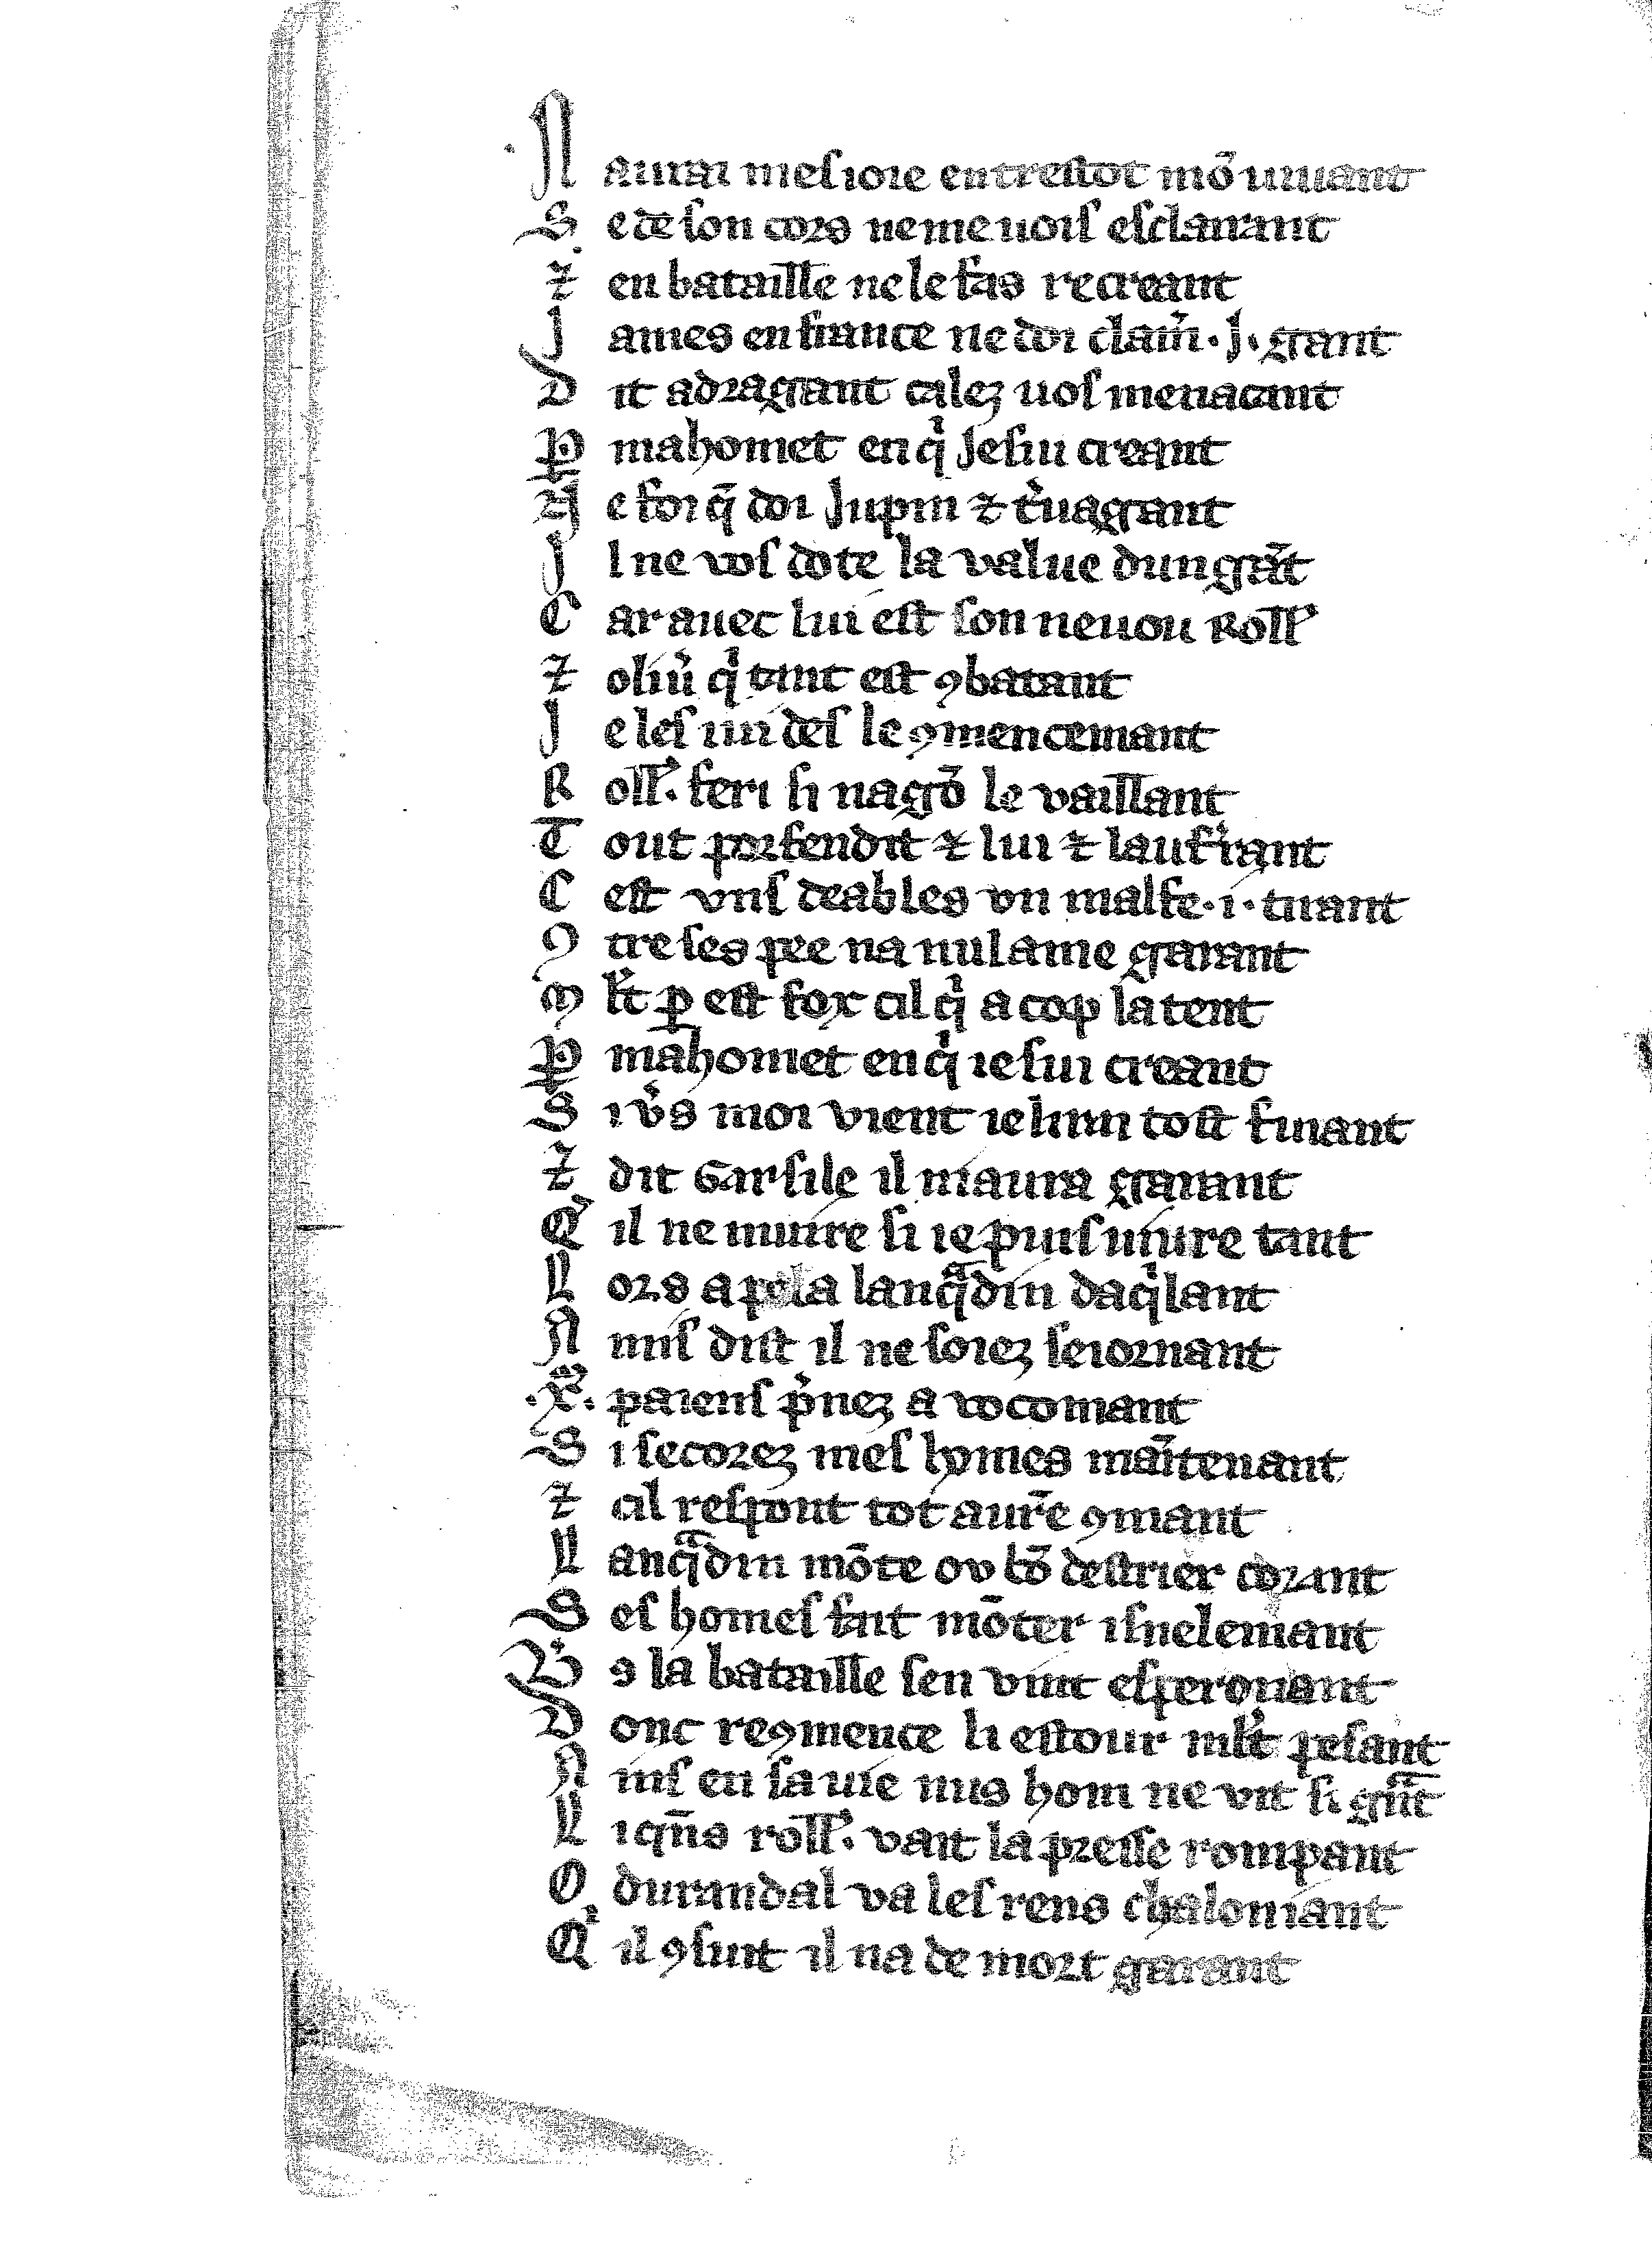 N aurai mes ioie en trestot mõ uiuant
S e de son cors ne me uois esclairant
⁊ en bataille ne le fas recreant
J ames en france ne doi clam̃ · j · gant
D it adragant talez uos menacant
ꝑ mahomet en q̍ je sui creant
N e foi q̄ doi jupin ⁊ t̃uagant
J l ne vos dote la value dun gāt
C ar auec lui est son neuou Roll̉
⁊ oliũ q̍ tant est ꝯbatant
J e les ui des le ꝯmencemant
R oll̉. feri si nagõ le vaillant
T out porfendit ⁊ lui ⁊ laufirant
C est vns deables vn malfe · i · tirant
ꝯ tre sespee na nul ame garant
M l̃t ꝑ est fox cil q̍ a cop latent
ꝑ mahomet en q̍ ie sui creant
S i ṽs moi vient ie li uin tost fuiant
⁊ dit Garsile il maura garant
Q̍ il ne muire si ie puis uiure tant
L ors apela lanq̃din daq̍lant
A mis dist il ne soiez seiornant
.x.ͫ paiens p̃nez a vo comant
S i secorez mes homes maītenant
⁊ cil respont tot aur̃e ꝯmant
L anq̃din mōte ou bō destrier corant
S es homes fait mōter isnelemant
V̉ ꝯ la bataille sen vint esperonant
D onc reꝯmence li estour ml̃t pesant
A ins en sa uie nus hom ne vit si gñt
L i q̄ns roll̉. vait la presse rompant
O durandal va les rens chaloniant
Q̍ il ꝯsiut il na de mort garant